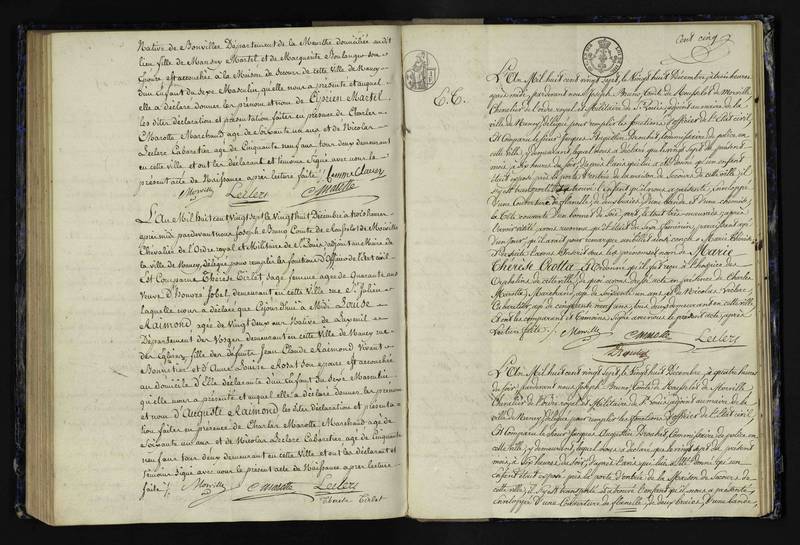 Native de Bonviller Département de la Meurthe domiciliée audit
lieu, fille de Mansuy Martel et de Marguerite Boulanger son
Epouse est accouchée à la Maison de Secours de cette Ville de Nancy
d'un Enfant du Sexe Masculin, qu'elle nous a présenté et auquel
elle a déclaré donner les prénom et nom de Cyprien Martel
les dites déclaration et présentation faites en présence de Charles
Marotte Marchand agé de Soixante un ans et de Nicolas
Leclerc Cabaretier agé de Cinquante neuf ans, tous deux demeurant
en cette ville et ont les déclarant et témoins Signé avec nous le
présent acte de Naissance après lecture faite
Morville Leclerc Marotte
L'An Mil huit cent Vingt Sept le Vingt huit Décembre à trois heures
après midi pardevant nous Joseph Bruno Comte de Morville
Chevalier de l'Ordre royal et Militaire de St Louis adjoint au Maire de
la ville de Nancy, délégué pour remplir les fonctions d'Officier de l'Etat civil
Est Comparue Thérèse Tirlet Sage femme agée de Quarante ans
Veuve d'Honoré Jobel, demeurant en cette Ville rue St Julien
laquelle nous a déclaré que Cejourd'hui à Midi Louise
Raimond, agée de Vingt deux ans Native de Luxeuil
Département des Vosges demeurant en cette Ville de Nancy rue
des Eglises, fille de défunts Jean Claude Raimond Vivant
Bonnetier et d'Anne Louise Rosat Son épouse est accouchée
au domicile d'Elle déclarante d'un Enfant du Sexe Masculin
qu'elle nous a présenté et auquel elle a déclaré donner les prénom
et nom d'Auguste Raimond les dites déclaration et présenta-
tion faites en présence de Charles Marotte Marchand agé de
Soixante un ans et de Nicolas Leclerc Cabaretier agé de Cinquante
neuf ans tous deux demeurant en cette Ville et ont les déclarant et
témoins Signé avec nous le présent acte de Naissance après lecture
faite Morville Marotte Leclerc
Thérèse Tirlet
Cent cinq
E.T.
L'An Mil huit cent vingt Sept, le Vingt huit Décembre, à trois heures
après midi, pardevant nous Joseph Bruno Comte de Morville
Chevalier de l'Ordre royal et Militaire de St Louis, adjoint au maire de la
ville de Nancy, délégué pour remplir les fonctions d'officier de l'Etat civil,
Est Comparu le Sieur Jacques Augustin Drochet, Commissaire de police en
cette ville, y demeurant, lequel nous a déclaré que le vingt Sept du présent
mois, à Six heures du soir, d'après l'avis qui lui a été donné qu'un enfant
était exposé près la porte d'entrée de la maison de Secours de cette ville, il
s'y est transporté et a trouvé l'enfant qu'il nous a présenté, enveloppé
d'une Couverture de flanelle, de deux braies, d'une bande et d'une chemise,
la tête couverte d'un bonnet de soie, le tout très mauvais; après
l'avoir visité, avons reconnu qu'il était du Sexe féminin, paraissant agé
d'un jour, qu'il avait pour remarque un billet ainsi conçu: Marie Thérèse,
de suite l'avons Inscrit sous les prénoms et nom de Marie
Thérèse Crolla et ordonné qu'il fut remis à l'hospice des
Orphelins de cette ville; de quoi avons dressé acte en présence de Charles
Marotte, Marchand, agé de soixante un ans, et de Nicolas Leclerc,
Cabaretier, agé de cinquante neuf ans, tous deux demeurant en cette ville
et ont le comparant et témoins Signé avec nous le présent acte, après
lecture faite. Morville Marotte Leclerc
Drochet
L'An Mil huit cent vingt Sept, le vingt huit Décembre, à quatre heures
du soir, pardevant nous Joseph Bruno Comte de Morville,
Chevalier de l'ordre royal et Militaire de St Louis, adjoint au maire de la
ville de Nancy, délégué pour remplir les fonctions d'officier de l'Etat civil,
Est Comparu le Sieur Jacques Augustin Drochet, Commissaire de police en
cette ville, y demeurant, lequel nous a déclaré que le vingt sept du présent
mois, à Six heures du soir, d'après l'avis qui lui a été donné qu'un
enfant était exposé près la porte d'entrée de la Maison de Secours de
cette ville, il s'y est transporté et a trouvé l'enfant qu'il nous a présenté,
enveloppé d'une Couverture de flanelle, de deux braies, d'une bande,